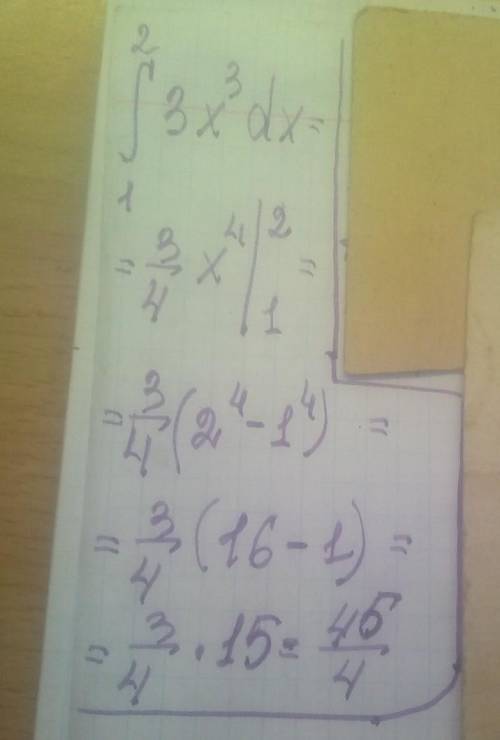 ∫₁² 3x³ dx =
= 3/4 x⁴ |₁² =
= 3/4 (2⁴ - 1⁴) =
= 3/4 (16 - 1) =
= 3/4 · 15 = 45/4